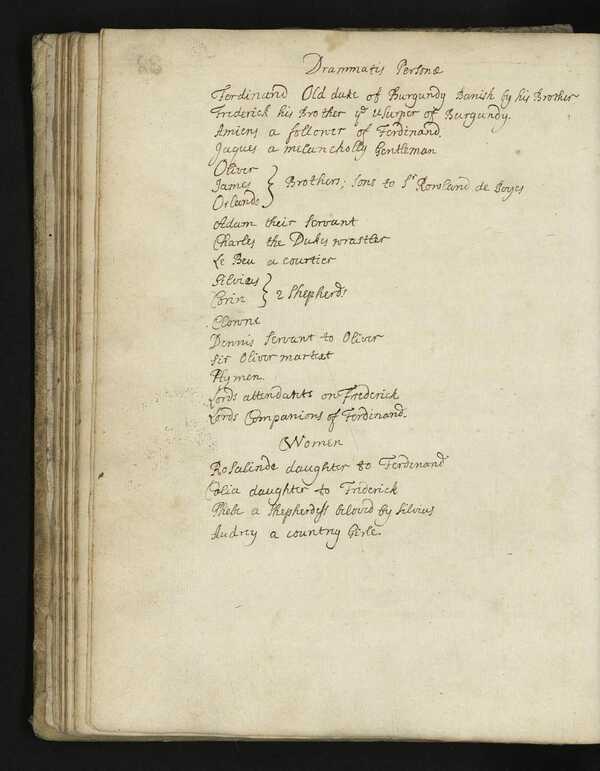 Drammatis Personæ
Ferdinand Old duke of Burgundy Banish by his Brother
Frederick his Brother yᵉ Usurper of Burgundy.
Amiens a follower of Ferdinand.
Jaques a melancholly Gentleman
Oliver
James } Brothers; sons to Sʳ Rowland de Boyes
Orlando
Adam their Servant
Charles the Dukes wrastler
Le Beu a courtier
Silvius
Corin } 2 Shepherds
Clowne
Dennis Servant to Oliver
Sir Oliver martext
Hymen.
Lords attendants on Frederick
Lords Companions of Ferdinand.
Women
Rosalinde daughter to Ferdinand
Celia daughter to Frederick
Phebe a Shepherdess beloved by Silvius
Audrey a country Girle.